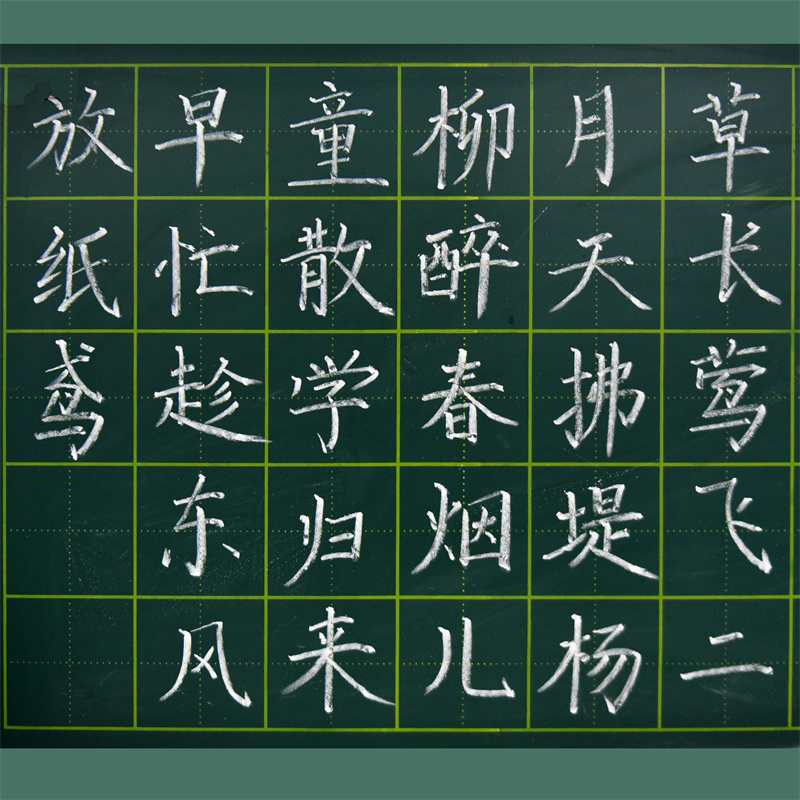 草长莺飞二
月天拂堤杨
柳醉春烟儿
童散学归来
早忙趁东风
放纸鸢